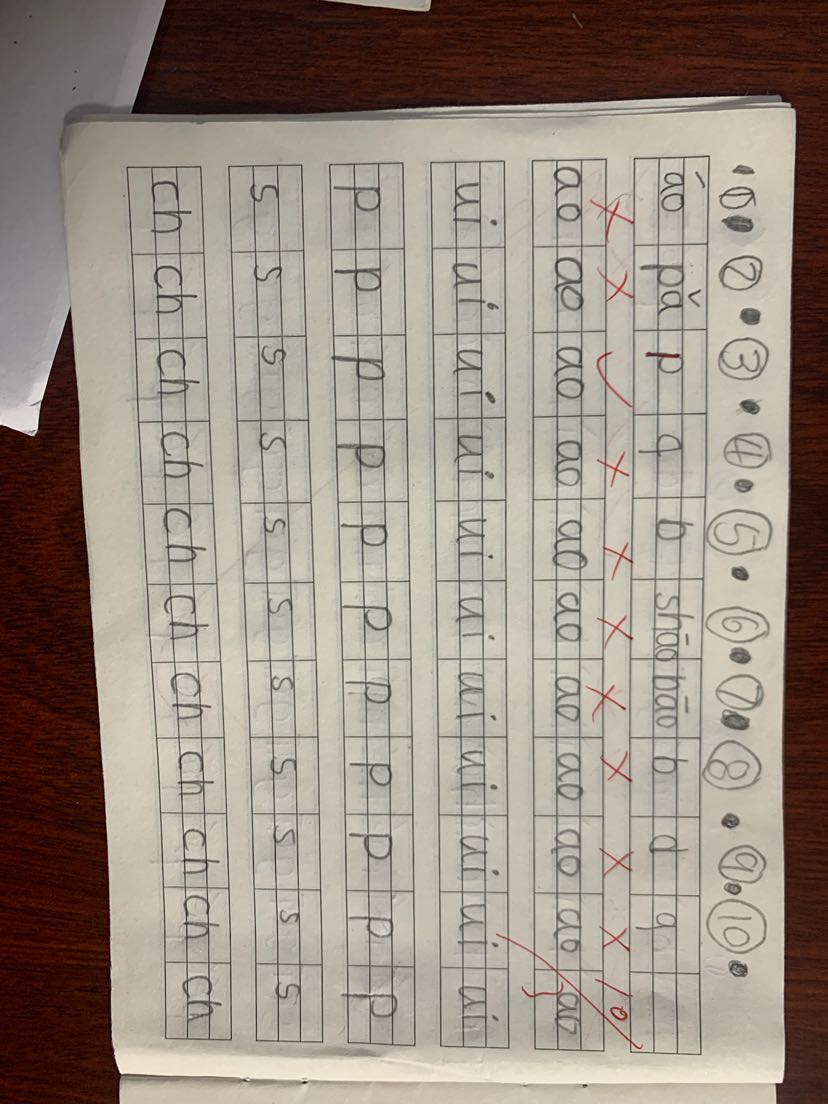 ① ② ③ ④ ⑤ ⑥ ⑦ ⑧ ⑨ ⑩
āo pǎ p q b shāo bāo b d q
× × ✓ × × × × × × × 10
ao ao ao ao ao ao ao ao ao ao ao
ui ui ui ui ui ui ui ui ui ui ui
p p p p p p p p p p p
s s s s s s s s s s s
ch ch ch ch ch ch ch ch ch ch ch